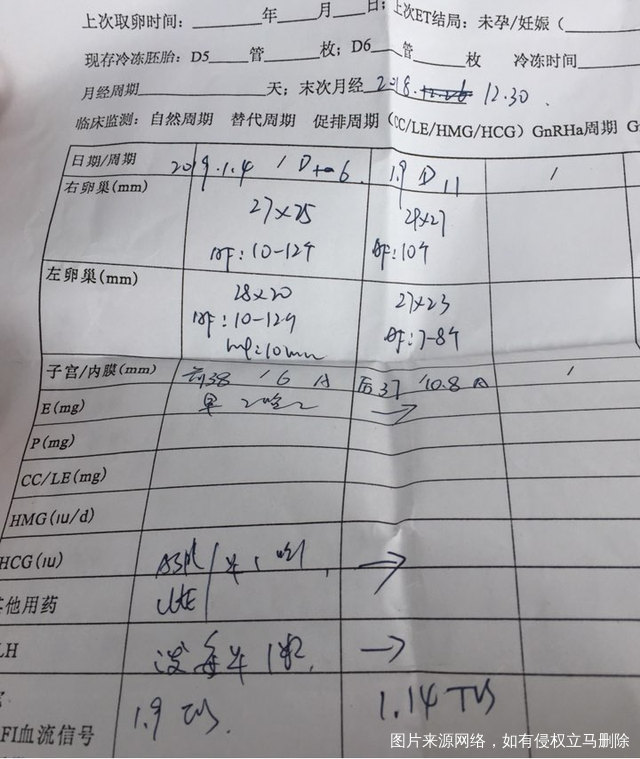 上次取卵时间：____年__月__日；上次ET结局：未孕/妊娠（
现存冷冻胚胎：D5____管____枚；D6__管____枚 冷冻时间
月经周期____天；末次月经 2018. 12.30.
临床监测：自然周期 替代周期 促排周期（CC/LE/HMG/HCG）GnRHa周期 G
日期/周期 2019.1.4 / D 6 1.9 D11 /
右卵巢(mm) 27×25 29×27
AF：10-12个 AF：10个
左卵巢(mm) 28×20 27×23
AF：10-12个 AF：7-8个
mf：10mm
子宫/内膜(mm) 前38 / 6 A 后37 /10.8 A /
E(mg) 早2晚2 →
P(mg)
CC/LE(mg)
HMG(iu/d)
HCG(iu) →
其他用药
LH →
1.9 TVS. 1.14 TVS
FI血流信号
图片来源网络，如有侵权立马删除